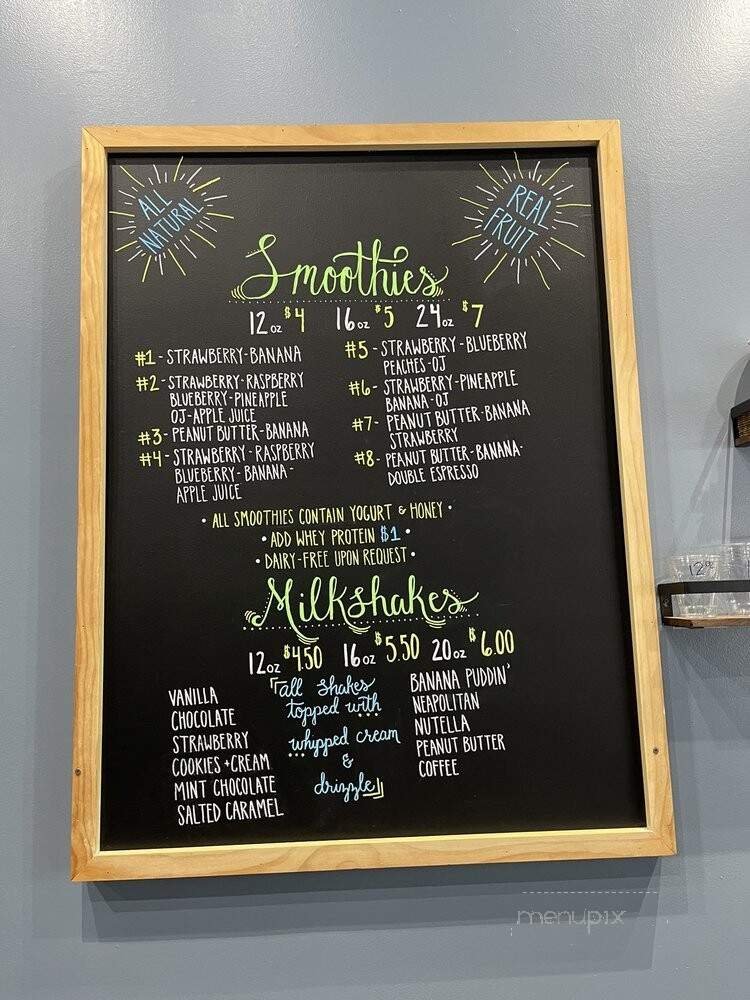 ALL
NATURAL
REAL
FRUIT
Smoothies
12oz $4 16oz $5 24oz $7
#1 - STRAWBERRY-BANANA
#2 - STRAWBERRY-RASPBERRY
BLUEBERRY-PINEAPPLE
OJ-APPLE JUICE
#3 - PEANUT BUTTER-BANANA
#4 - STRAWBERRY-RASPBERRY
BLUEBERRY-BANANA-
APPLE JUICE
#5 - STRAWBERRY-BLUEBERRY
PEACHES-OJ
#6 - STRAWBERRY-PINEAPPLE
BANANA-OJ
#7 - PEANUT BUTTER-BANANA
STRAWBERRY
#8 - PEANUT BUTTER-BANANA-
DOUBLE ESPRESSO
• ALL SMOOTHIES CONTAIN YOGURT & HONEY •
• ADD WHEY PROTEIN $1 •
• DAIRY-FREE UPON REQUEST •
Milkshakes
12oz $4.50 16oz $5.50 20oz $6.00
VANILLA
CHOCOLATE
STRAWBERRY
COOKIES + CREAM
MINT CHOCOLATE
SALTED CARAMEL
all shakes
topped with
whipped cream
&
drizzle
BANANA PUDDIN'
NEAPOLITAN
NUTELLA
PEANUT BUTTER
COFFEE
12oz
menupix